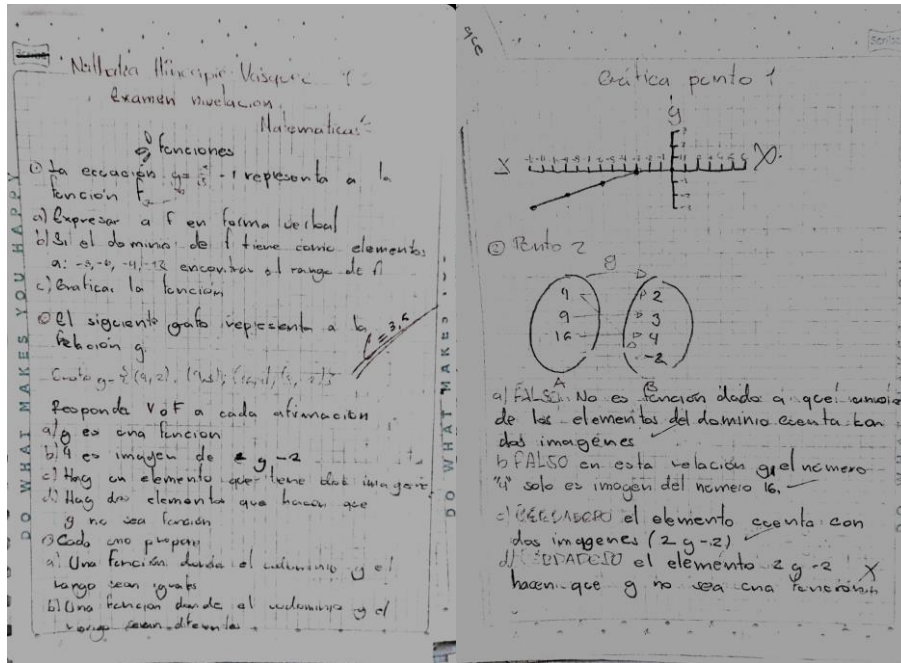 Vásquez
Examen nivelación.
Matematicas
funciones
① La ecuación y= -1 representa a la
función
a) Expresar a f en forma verbal
b) Si el dominio de f tiene como elementos
a: -3, -6, -9, -12 encontrar el rango de f
c) Graficar la función
② El siguiente grafo representa a la
Relación g.
Responda V o F a cada afirmación
a) g es una funcion
b) 4 es imagen de 2 y -2
c) Hay un elemento que tiene dos imagenes
d) Hay dos elementos que hacen que
g no sea función
③ Cada uno propon
a) Una función donde el codominio y el
rango sean iguales
b) Una función donde el codominio y el
rango sean diferentes
3,6
DO WHAT MAKES YOU HAPPY
que
Gráfica punto 1
y
X
② Punto 2
g
4 2
9 3
16 4
-2
A B
a) FALSO. No es función dado a que
de los elementos del dominio cuenta con
dos imagénes
b FALSO en esta relación g el número
"4" solo es imagen del número 16.
c) VERDADERO el elemento cuenta con
dos imagenes (2 y -2)
d) VERDADERO el elemento 2 y -2 X
hacen que g no sea una función
DO WHAT MAKES